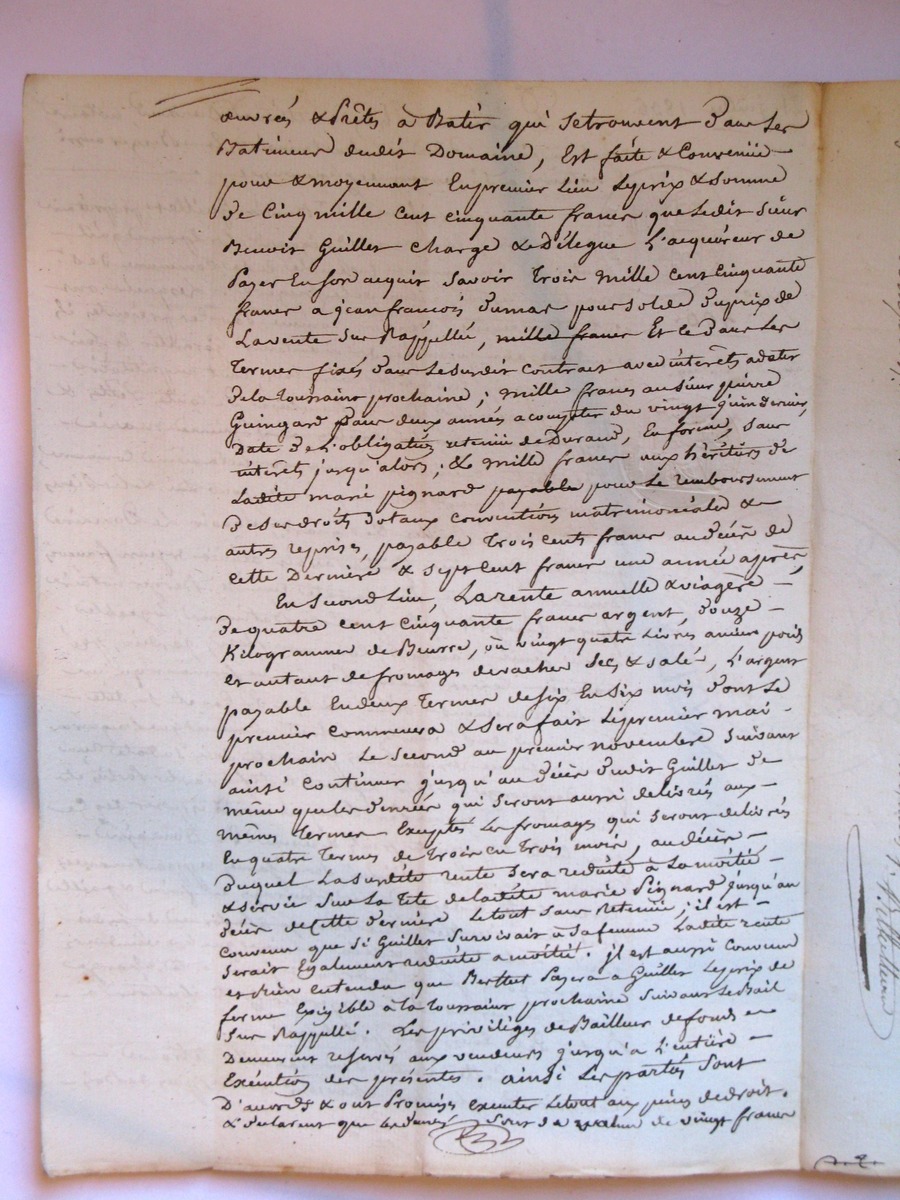 œuvrés & Prêts à Batir qui setrouvent Dans Les
Batiments dudit Domaine, Est faite & Convenüe
pour & moyennant En premier Lieu Le prix & somme
de Cinq mille Cent cinquante francs que Ledit Sieur
Benoit Guillet Charge & Délegue L'acquéreur de
Payer En son acquit Savoir Trois mille cent cinquante
francs a jean francois Dumas pour solde Du prix de
La vente Sus Rappellée, mille francs Et ce Dans Les
Termes fixés Dans Le susdit Contrat avec intérêts adater
De la toussaint prochaine ; mille francs au Sieur pierre
Guingard Dans deux années acompter du vingt juin dernier,
Date De L'obligation retenüe de Durand, En forme, sans
intérêts jusqu'alors ; & mille francs aux héritiers de
Ladite marie pignard payable pour Le remboursement
De ses droits Dotaux Conventions matrimoniales &
autres reprises, payable Trois cents francs au décès de
Cette Dernière & sept cent francs une année après,
En Second Lieu, La rente annuelle & viagère
De quatre cent cinquante francs argent, Douze
Kilogrammes de Beurre, où vingt quatre Livres ancien poids
Et autant de fromages de vaches sec & salé, L'argent
payable En deux Termes de six En Six mois Dont Le
premier Commencera & sera fait Le premier mai
prochain Le second au premier novembre Suivant
ainsi Continuer jusqu'au décès Dudit Guillet De
même que Les Denrées qui Seront aussi délivrés aux
mêmes Termes Exceptés Les fromages qui seront délivrés
En quatre Termes de Trois En Trois mois, au décès
Duquel La susdite rente Sera réduite à La moitié
& servie Sur La Tête de ladite marie Pignard jusqu'au
Décès de Cette Dernière Le tout sans Retenüe ; il est
Convenu que Si Guillet Survivait à sa femme Ladite rente
Serait Egalement réduite a moitié. il est aussi Convenu
et bien entendu que Berthet Payera a Guillet Le prix de
ferme Exigible à La toussaint prochaine Suivant Le Bail
Sus Rappellé. Les privilèges de Bailleur de fonds
Demeurent reservés aux vendeurs jusqu'a L'entière
Exécution des présentes. ainsi Les parties Sont
D'accord & ont Promises executer Le tout aux peines de droit.
& declarent que Les Denrées Sont De valeur de vingt francs